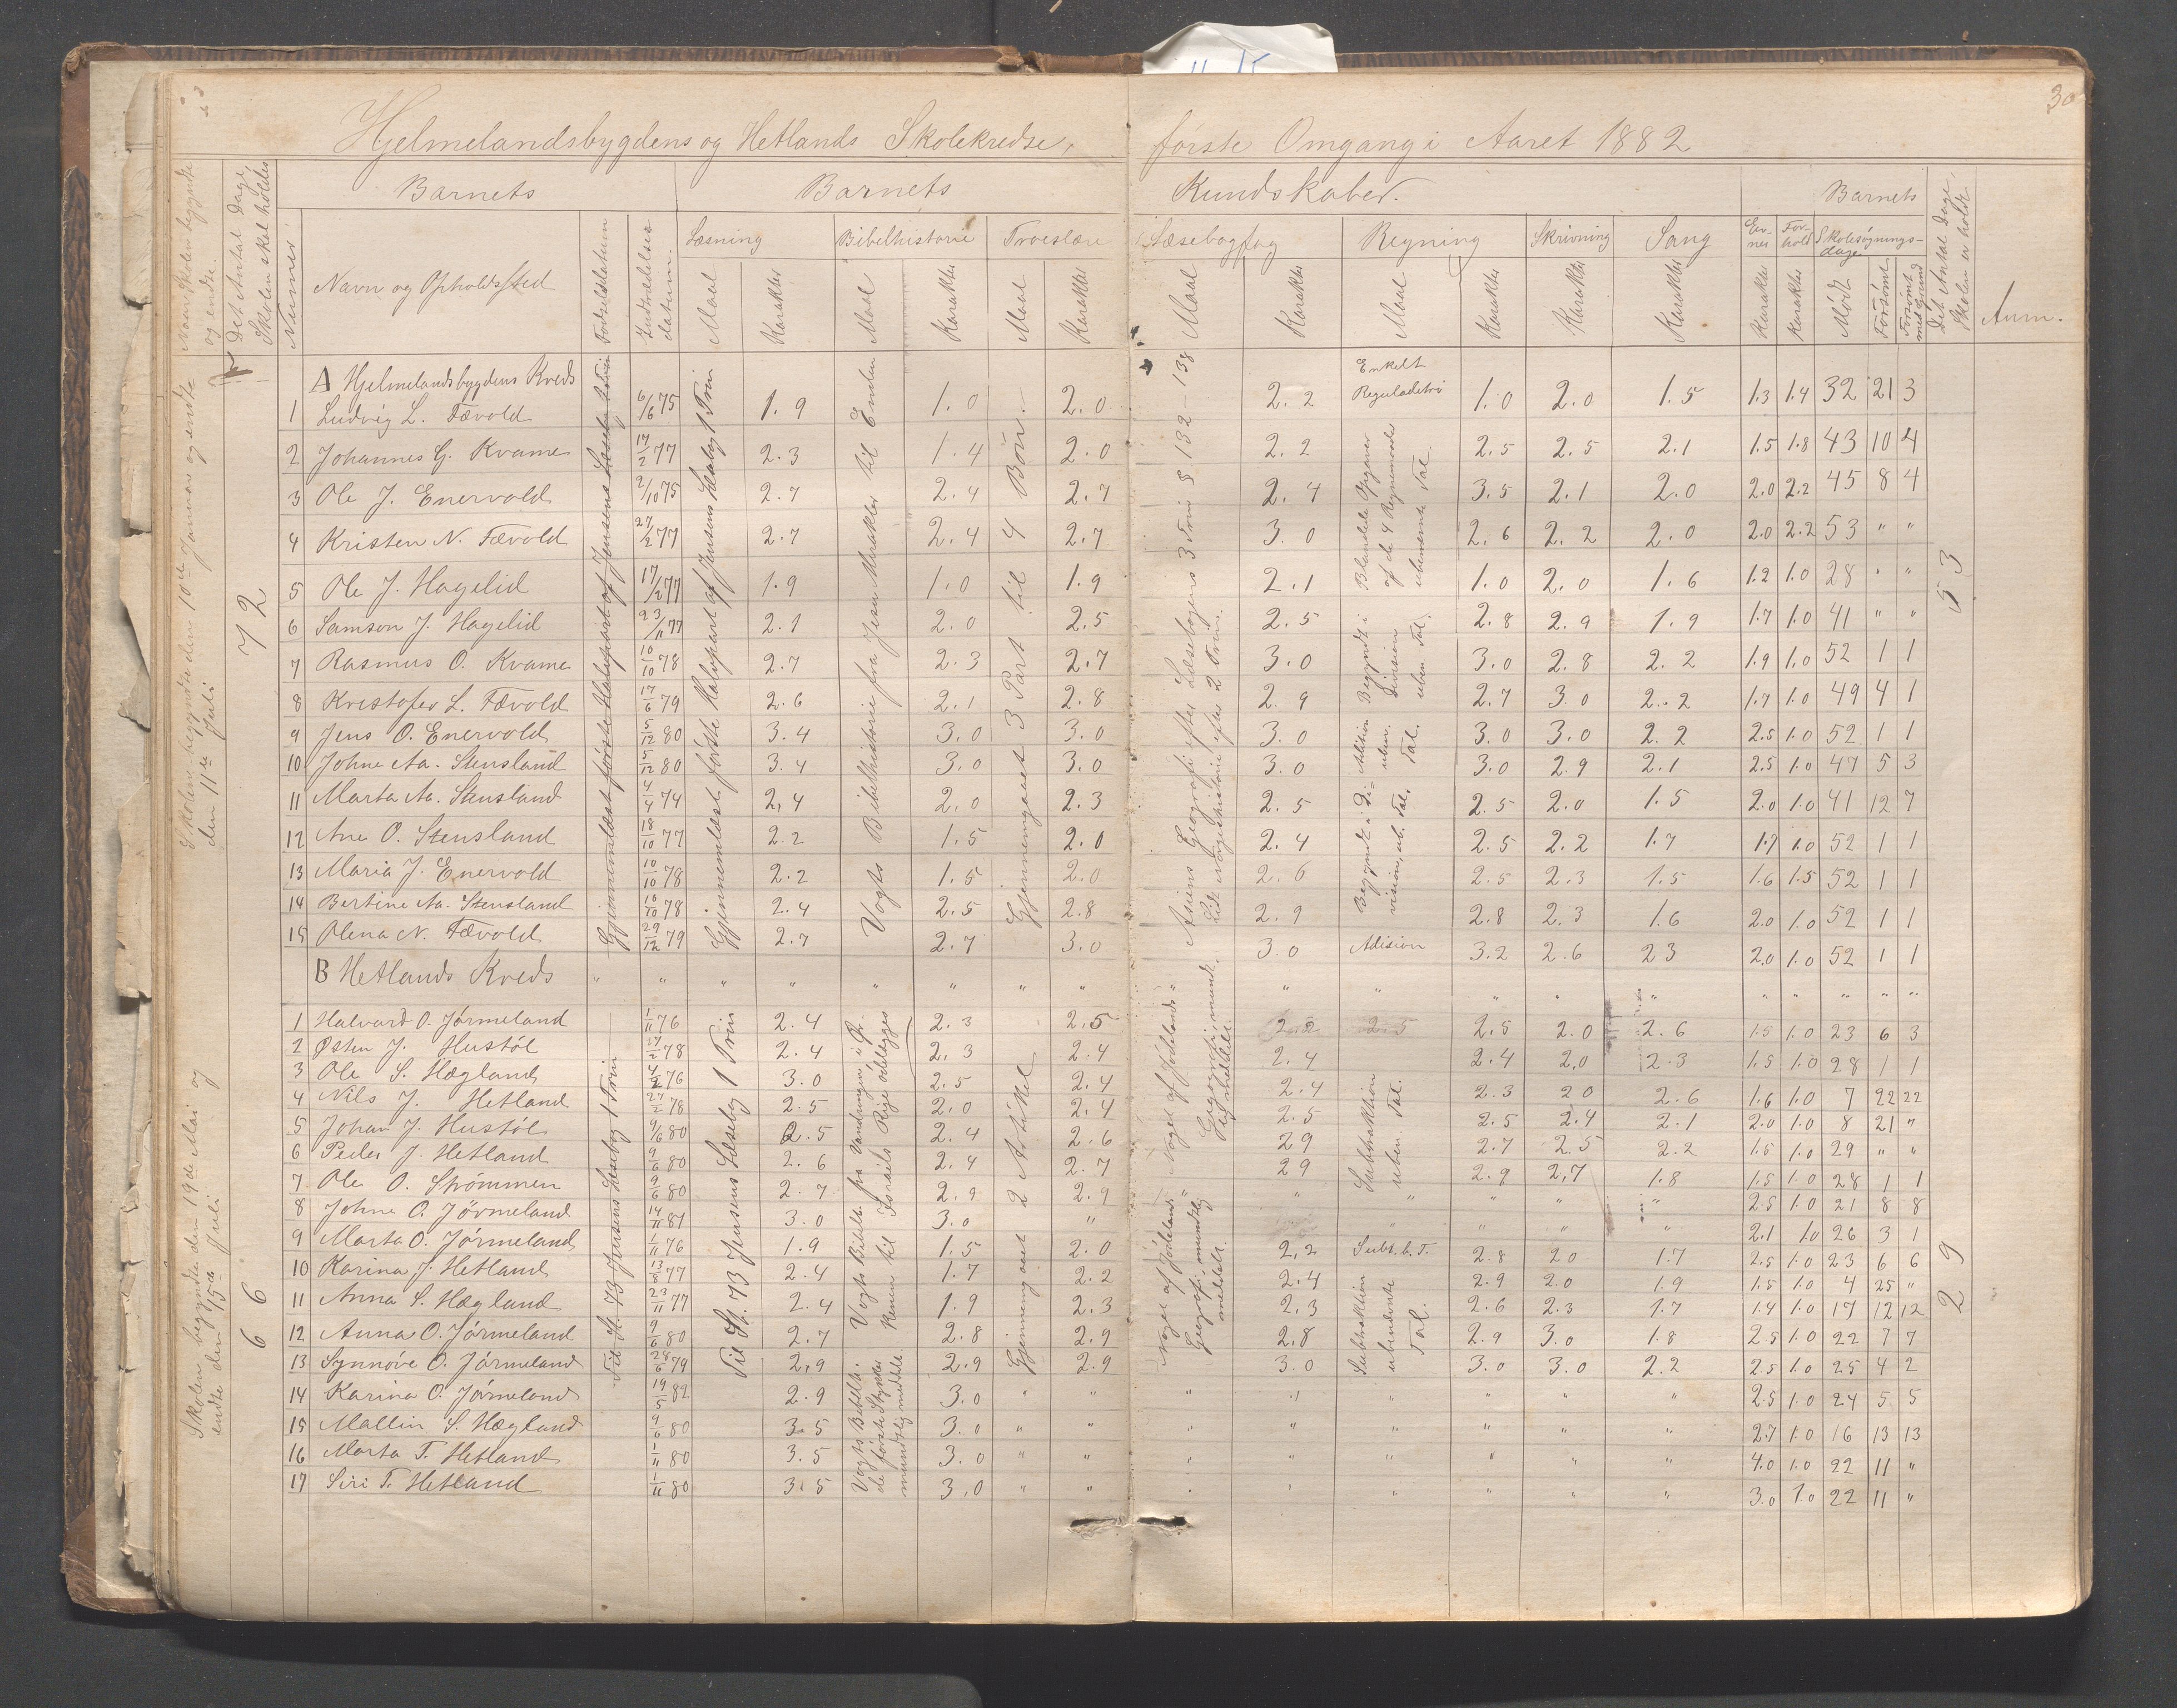 30
Hjelmelandsbygdens og Hetlands Skolekredse, første Omgang i Aaret 1882
Naar Skolen begyndte og endte.
Det Antal Dage, Skolen skal holdes
Numer
Barnets
Navn og Opholdssted
Fødselsdatum
Indtrædelsesdatum
Barnets Kundskaber.
Læsning
Maal
Karakter
Bibelhistorie
Maal
Karakter
Troeslære
Maal
Karakter
Læsebogfag
Maal
Karakter
Regning
Maal
Karakter
Skrivning
Karakter
Sang
Karakter
Ev-ner
Karakter
For-hold
Karakter
Barnets
Skolesøgnings-dage
Mødt
Forsømt
Forsømt med Grund
Det Antal Dage, Skolen er holdt
Anm.
Skolen begyndte den 10de Januar og endte den 11te Juli
72
53
A Hjelmelandsbygdens Kreds
1 Ludvig L. Fævold 6/6 75 1.9 1.0 2.0 2.2 Enkelt Reguladetri 1.0 2.0 1.5 1.3 1.4 32 21 3
2 Johannes G. Kvame 17/2 77 2.3 1.4 2.0 2.2 2.5 2.5 2.1 1.5 1.8 43 10 4
3 Ole J. Enervold 2/10 75 2.7 2.4 2.7 2.4 3.5 2.1 2.0 2.0 2.2 45 8 4
4 Kristen N. Fævold 27/2 77 2.7 2.4 2.7 3.0 2.6 2.2 2.0 2.0 2.2 53 " "
5 Ole J. Hagelid 17/2 77 1.9 1.0 1.9 2.1 1.0 2.0 1.6 1.2 1.0 28 " "
6 Samson J. Hagelid 23/11 77 2.1 2.0 2.5 2.5 2.8 2.9 1.9 1.7 1.0 41 " "
7 Rasmus O. Kvame 10/10 78 2.7 2.3 2.7 3.0 3.0 2.8 2.2 1.9 1.0 52 1 1
8 Kristofer L. Fævold 17/6 79 2.6 2.1 2.8 2.9 2.7 3.0 2.2 1.7 1.0 49 4 1
9 Jens O. Enervold 5/12 80 3.4 3.0 3.0 3.0 3.0 3.0 2.2 2.5 1.0 52 1 1
10 Johne Aa. Stensland 5/12 80 3.4 3.0 3.0 3.0 3.0 2.9 2.1 2.5 1.0 47 5 3
11 Marta Aa. Stensland 4/4 74 2.4 2.0 2.3 2.5 2.5 2.0 1.5 2.0 1.0 41 12 7
12 Ane O. Stensland 18/10 77 2.2 1.5 2.0 2.4 2.5 2.2 1.7 1.7 1.0 52 1 1
13 Maria J. Enervold 10/10 78 2.2 1.5 2.0 2.6 2.5 2.3 1.5 1.6 1.5 52 1 1
14 Bertine Aa. Stensland 10/10 78 2.4 2.5 2.8 2.9 2.8 2.3 1.6 2.0 1.0 52 1 1
15 Olena N. Fævold 29/12 79 2.7 2.7 3.0 3.0 Adision 3.2 2.6 23 2.0 1.0 52 1 1
Gjennemlæst første Halvpart af Jensens Læsebog 1 Trin
Gjennemlæst første Halvpart af Jensens Læsebog 1 Trin
Vogts Bibelhistorie fra Jesu Mirakler til Enden
Gjennemgaaet 3 Part til 4 Bøn.
Asiens Geografi efter Læsebogens 3 Trin § 132 - 138
Lidt Norgeshistorie efter 2 Trin.
Blandede Opgaver af de 4 Regnemaader ubenævnte Tal
Begyndt i Division uben. Tal.
Adition uben. Tal.
Begyndt i Division, ub. Tal.
B Hetlands Kreds
Skolen begyndte den 19de Mai og endte den 15de Juli
66
29
1 Halvard O. Jørmeland 1/11 76 2.4 2.3 2.5 2.5 2.0 2.6 1.5 1.0 23 6 3
2 Østen J. Hustøl 17/2 78 2.4 2.3 2.4 2.4 2.4 2.0 2.3 1.5 1.0 28 1 1
3 Ole S. Hægland 4/2 76 3.0 2.5 2.4 2.4 2.3 20 2.6 1.6 1.0 7 22 22
4 Nils J. Hetland 27/2 78 2.5 2.0 2.4 2.5 2.5 2.4 2.1 2.0 1.0 8 21 "
5 Johan J. Hustøl 9/6 80 2.5 2.4 2.6 29 2.7 2.5 2.2 1.5 1.0 29 " "
6 Peder J. Hetland 9/6 80 2.6 2.4 2.7 29 2.9 2.7 1.8 1.5 1.0 28 1 1
7 Ole O. Strømmen 9/6 80 2.7 2.9 2.9 " " " " " 2.5 1.0 21 8 8
8 Johne O. Jørmeland 14/11 81 3.0 3.0 " " " " " 2.1 1.0 26 3 1
9 Marta O. Jørmeland 1/11 76 1.9 1.5 2.0 2.2 Subt. b. T. 2.8 20 1.7 2.5 1.0 23 6 6
10 Karina J. Hetland 77 2.4 1.7 2.2 2.4 2.9 2.0 1.9 1.5 1.0 4 25 "
11 Anna S. Hægland 23/11 77 2.4 1.9 2.3 2.3 2.6 2.3 1.7 1.4 1.0 17 12 12
12 Anna O. Jørmeland 9/6 80 2.7 2.8 2.9 2.8 2.9 3.0 1.8 2.5 1.0 22 7 7
13 Synnøve O. Jørmeland 28/6 79 2.9 2.9 2.9 3.0 3.0 3.0 2.2 2.5 1.0 25 4 2
14 Karina O. Jørmeland 19/5 82 2.9 3.0 " " " " " " " 2.5 1.0 24 5 5
15 Mallin S. Hægland 9/6 80 3.5 3.0 " " " " " " " 2.7 1.0 16 13 13
16 Marta T. Hetland 1/11 80 3.5 3.0 " " " " " " " 4.0 1.0 22 11 "
17 Siri T. Hetland 1/11 80 3.5 3.0 " " " " " " " 3.0 1.0 22 11 "
Til St. 73 Jensens Læsebog 1 Trin
Til St. 73 Jensens Læsebog 1 Trin
Vogts Bibelh. fra Vandringen i Ør-kenen til Israels Rige ødelegges
Vogts Bibelh. de første Stykker mundtlig meddelt.
Gjennemgaaet 2 Artikel
Noget af Jødelands Geografi, mundtlig meddelt.
Noget af Jødelands Geografi, mundtlig meddelt.
Subtraktion uben. Tal.
Subtraktion ubenævnte Tal.